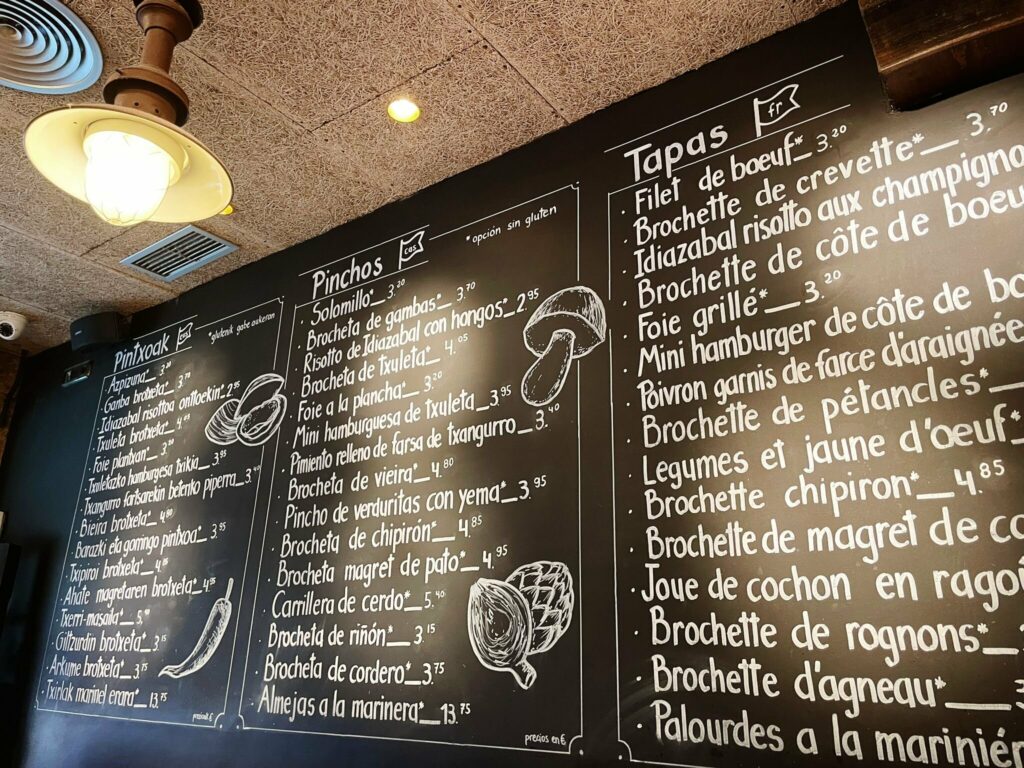 Pintxoak eus
*glutenik gabe aukeran
· Azpizuna__3.20
· Ganba brotxeta*__3.70
· Idiazabal risottoa onttoekin*_2.95
· Txuleta brotxeta*__4.05
· Foie plantxan*__3.20
· Txuletazko hamburgesa txikia__3.95
· Txangurro fartsarekin betetako piperra__3.40
· Bieira brotxeta*__4.80
· Barazki eta gorringo pintxoa*__3.95
· Txipiroi brotxeta*__4.85
· Ahate magretaren brotxeta*__4.95
· Txerri-masaila*__5.40
· Giltzurdin brotxeta*__3.15
· Arkume brotxeta*__3.75
· Txirlak marinel erara*__13.75
prezioak €
Pinchos cas
*opción sin gluten
· Solomillo*__3.20
· Brocheta de gambas*__3.70
· Risotto de Idiazabal con hongos*_2.95
· Brocheta de Txuleta*__4.05
· Foie a la plancha*__3.20
· Mini hamburguesa de txuleta__3.95
· Pimiento relleno de farsa de txangurro__3.40
· Brocheta de vieira*__4.80
· Pincho de verduritas con yema*__3.95
· Brocheta de chipirón*__4.85
· Brocheta magret de pato*__4.95
· Carrillera de cerdo*__5.40
· Brocheta de riñón*__3.15
· Brocheta de cordero*__3.75
· Almejas a la marinera*__13.75
precios en €
Tapas fr
· Filet de boeuf*__3.20
· Brochette de crevette*__3.70
· Idiazabal risotto aux champigno
· Brochette de côte de boeu
· Foie grillé*__3.20
· Mini hamburger de côte de bo
· Poivron garnis de farce d'araignée
· Brochette de pétancles*__
· Legumes et jaune d'œuf*
· Brochette chipiron*__4.85
· Brochette de magret de ca
· Joue de cochon en ragoû
· Brochette de rognons*__
· Brochette d'agneau*__3
· Palourdes a la marinièr